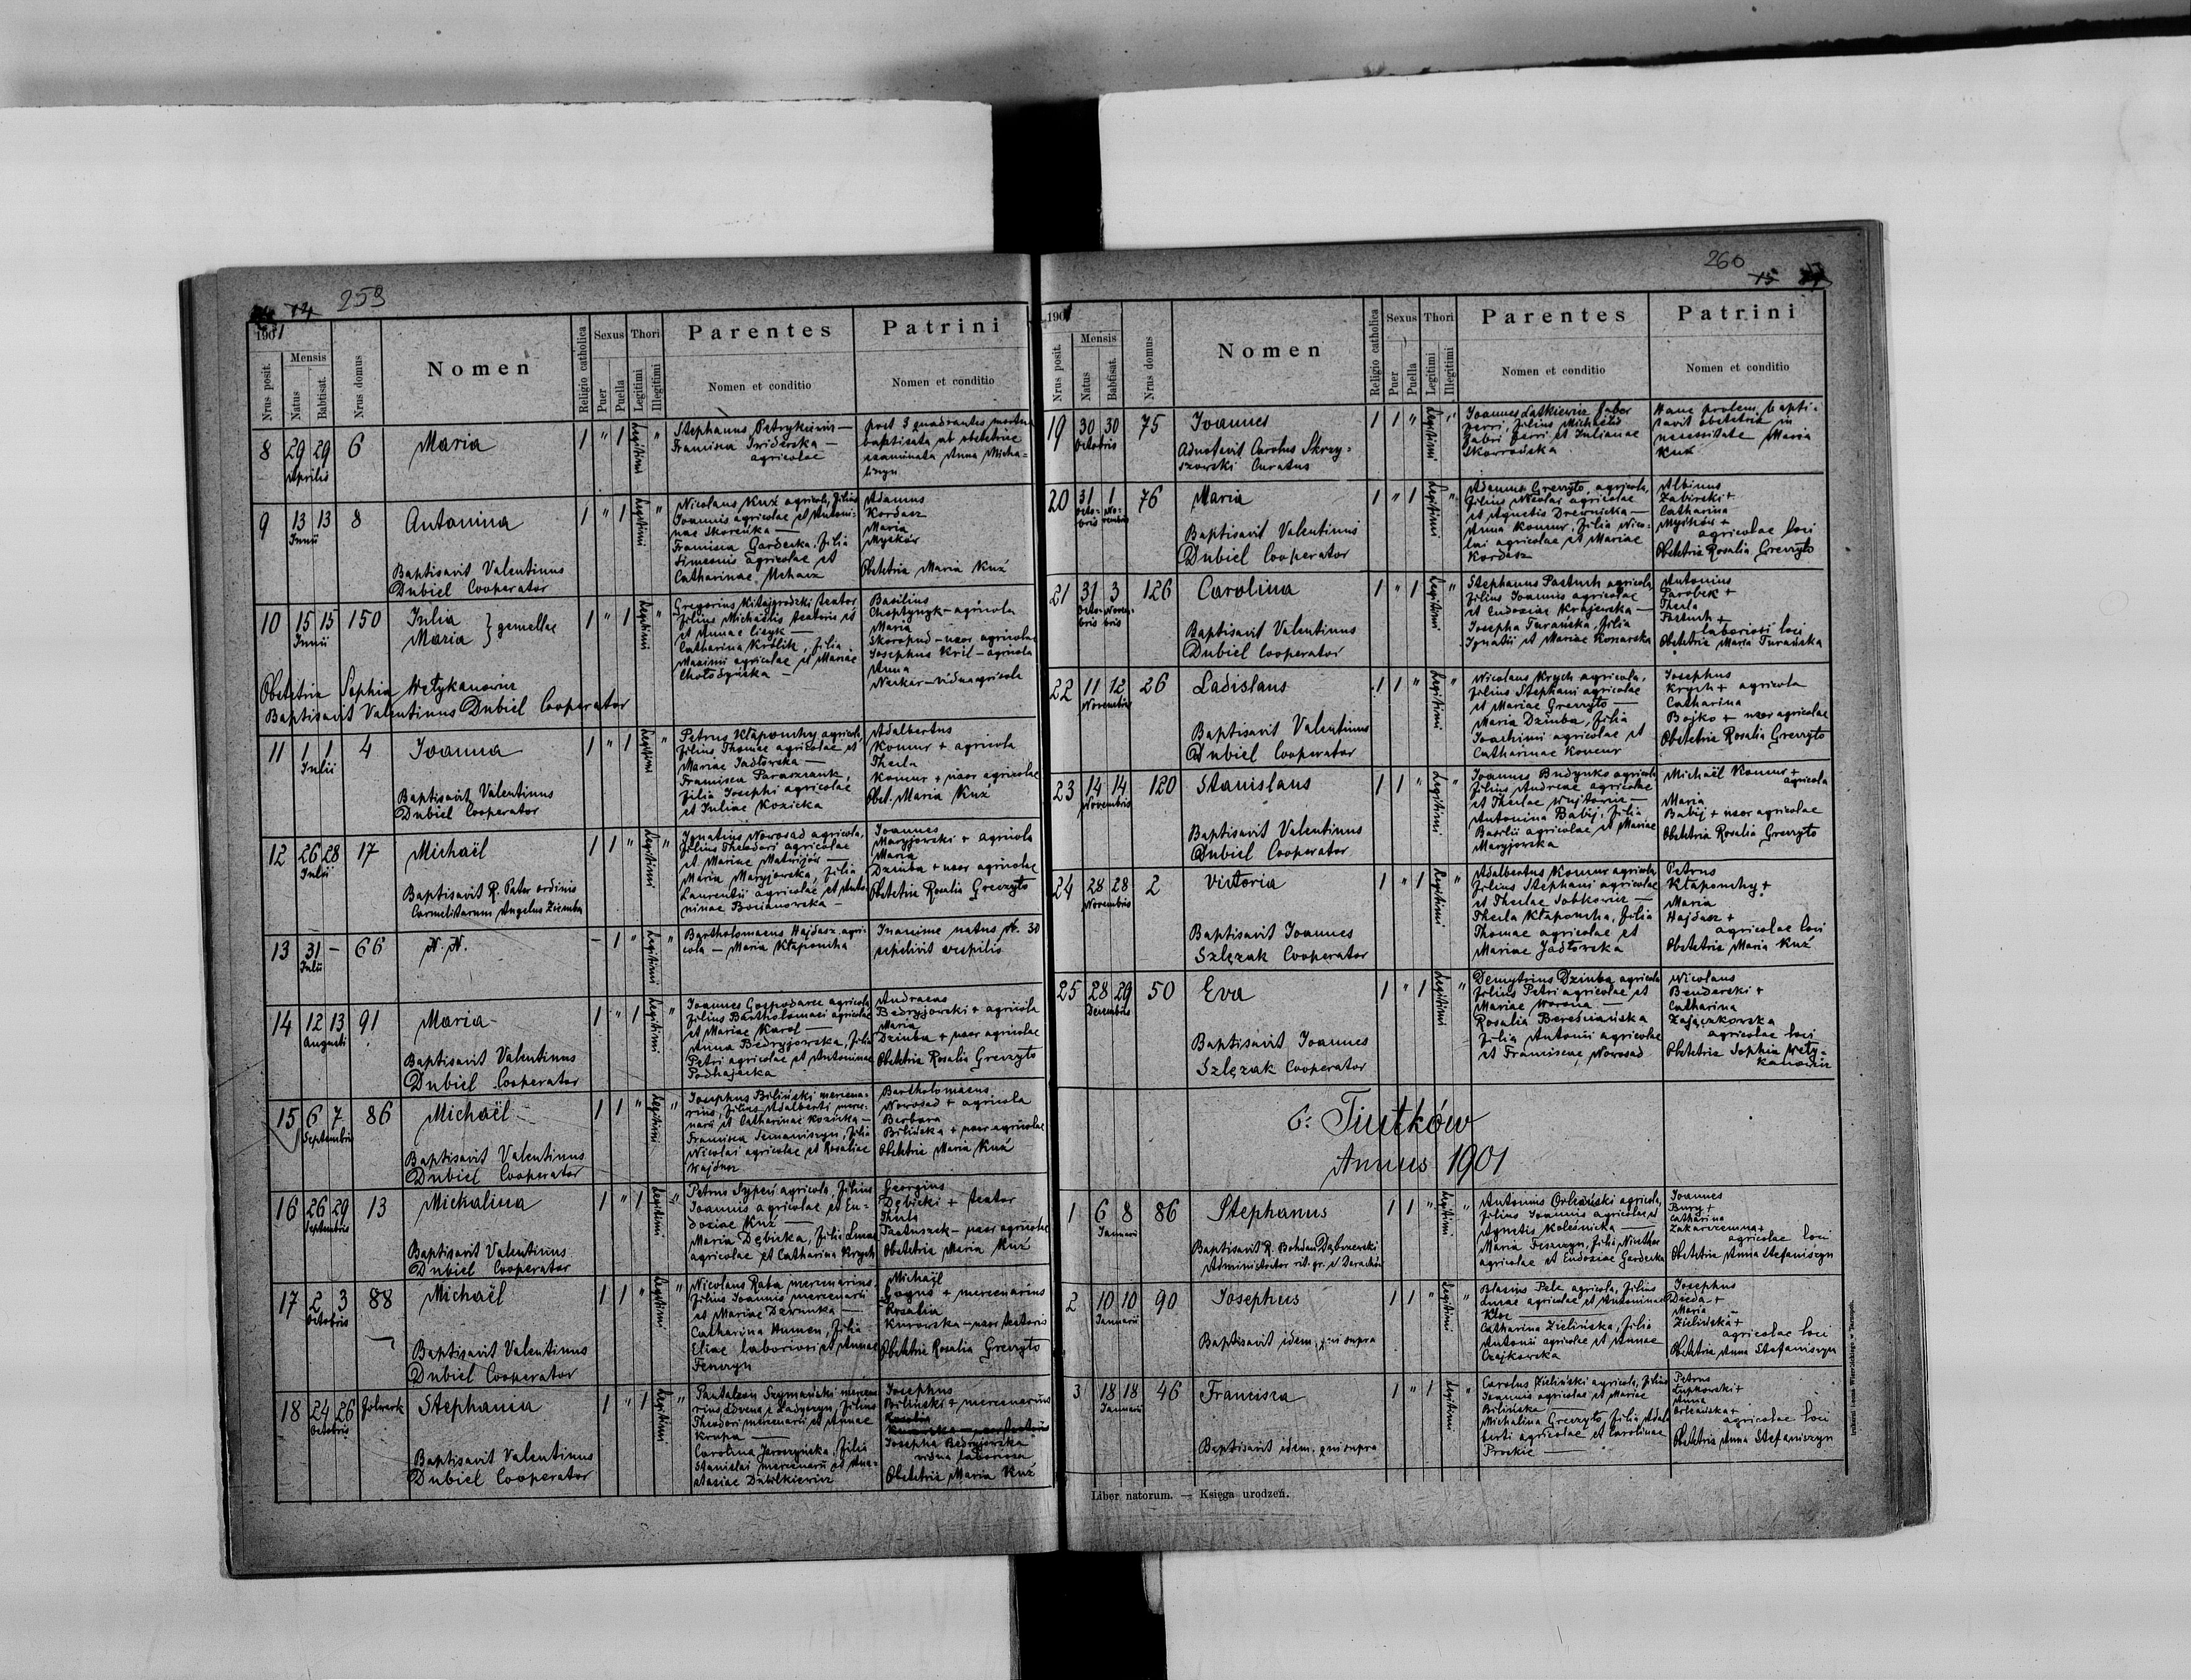 14 259
1901
Nrus posit.
Mensis
Natus
Babtisat.
Nrus domus
Nomen
Religio catholica
Sexus
Puer
Puella
Thori
Legitimi
Illegitimi
Parentes
Nomen et conditio
Patrini
Nomen et conditio
8 29 29 Aprilis 6 Maria 1 " 1 Legitimi "
Stephanus Petrykiewicz —
Francisca Iwiderska —
agricolae
post 3 quadrantes mortua
baptisata ab obstetrice
examinata Anna Micha-
liszyn
9 13 13 Junii 8 Antonina 1 " 1 Legitimi "
Baptisavit Valentinus
Dubiel Cooperator
Nicolaus Kuź agricola, filius
Joannis agricolae et Antoni-
nae Skoreńka —
Francisca Garderka, filia
Simeonis agricolae et
Catharinae
Adamus
Kordasz
Maria
Myśków
Obstetrix Maria Kuź
10 15 15 Junii 150 Julia
Maria } gemellae 1 " 1 Legitimi
Obstetrix Sophia Wełykanowicz
Baptisavit Valentinus Dubiel Cooperator
Gregorius Kitajgrodzki textor
filius Michaëlis textoris et
et Annae Lisyk —
Catharina Królik, filia
Maximi agricolae et Mariae
Chołodyńska —
Basilius
Choptynyk - agricola
Maria
Skoropad - uxor agricolae
Josephus Kril - agricola
Anna
- vidua agricola
11 1 1 Julii 4 Joanna 1 " 1 Legitimi "
Baptisavit Valentinus
Dubiel Cooperator
Petrus Kłapouchy agricola,
filius Thomae agricolae et
Mariae Jadłowska —
Francisca Paraszczuk,
filia Josephi agricolae
et Juliae Kozicka
Adalbertus
Komur + agricola
Thecla
Komur + uxor agricolae
Obst. Maria Kuź
12 26 28 Julii 17 Michaël 1 1 " Legitimi "
Baptisavit R. Pater ordinis
Carmelitarum Angelus Ziemba
Ignatius Nowosad agricola,
filius Theodori agricolae
et Mariae Matwijów —
Maria Maryjowska, filia
Laurentii agricolae et Anto-
ninae Bocianowska —
Joannes
Maryjowski + agricola
Maria
Dziuba + uxor agricolae
Obstetrix Rosalia Greczyło
13 31 - Julii 66 N. N. - 1 " Legitimi "
Bartholomaeus Hajdasz, agri-
cola — Maria Kłapoucha
Inanime natus N. 30
sepelivit vespilis
14 12 13 Augusti 91 Maria 1 " 1 Legitimi "
Baptisavit Valentinus
Dubiel Cooperator
Joannes Gospodarec agricola
filius Bartholomaei agricolae
et Mariae Karol —
Anna Bedryjowska, filia
Petri agricolae et Antoninae
Podhajecka
Andreas
Bedryjowski + agricola
Maria
Dziuba + uxor agricolae
Obstetrix Rosalia Greczyło
15 6 7 Septembris 86 Michaël 1 1 " Legitimi "
Baptisavit Valentinus
Dubiel Cooperator
Josephus Biliński mercena-
rius, filius Adalberti merce-
narii et Catharinae Kozicka —
Francisca Semaniszyn, filia
Nicolai agricolae et Rosaliae
Hajdasz
Bartholomaeus
Nowosad + agricola
Barbara
Bilińska + uxor agricolae
Obstetrix Maria Kuź
16 26 29 Septembris 13 Michalina 1 " 1 Legitimi "
Baptisavit Valentinus
Dubiel Cooperator
Petrus Sypeń agricola, filius
Joannis agricolae et Eu-
doxiae Kuź —
Maria Dębicka, filia Lucae
agricolae et Catharina Krych
Georgius
Dębicki + textor
Thecla
Pastuszak - uxor agricolae
Obstetrix Maria Kuź
17 2 3 Octobris 88 Michaël 1 1 " Legitimi "
Baptisavit Valentinus
Dubiel Cooperator
Nicolaus Raba mercenarius
filius Joannis mercenarii
et Mariae Derunka —
Catharina Humen, filia
Eliae laboriosi et Annae
Fenczyn
Michaël
Gogus + mercenarius
Rosalia
Kurowska - uxor textoris
Obstetrix Rosalia Greczyło
18 24 26 Octobris Folwark Stephania 1 " 1 Legitimi "
Baptisavit Valentinus
Dubiel Cooperator
Pantaleon Szymański mercena-
rius, advena e Ladyczyn, filius
Theodori mercenarii et Annae
Krupa —
Carolina Jeroszyńska, filia
Stanislai mercenarii et Ana-
stasiae Dubilkiewicz
Josephus
Biliński + mercenarius
Josepha Bedryjowska
vidua laboriosa
Obstetrix Maria Kuź
260
15
1901
Nrus posit.
Mensis
Natus
Babtisat.
Nrus domus
Nomen
Religio catholica
Sexus
Puer
Puella
Thori
Legitimi
Illegitimi
Parentes
Nomen et conditio
Patrini
Nomen et conditio
19 30 30 Octobris 75 Joannes 1 1 " Legitimi "
Adnotavit Carolus Skrzy-
szowski Curatus
Joannes Latkiewicz faber
ferri, filius Michaëlis
fabri ferri et Julianae
Skowrońska
Hanc prolem bapti-
savit obstetrix in
necessitate Maria
Kuź
20 31 Octobris 1 Novembris 76 Maria 1 " 1 Legitimi "
Baptisavit Valentinus
Dubiel Cooperator
Adamus Greczyło, agricola,
filius Nicolai agricolae
et Agnetis Drewnicka —
Anna Komur, filia Nico-
lai agricolae et Mariae
Kordasz
Albinus
Zabirski +
Catharina
Myśków +
agricolae loci
Obstetrix Rosalia Greczyło
21 31 Octobris 3 Novembris 126 Carolina 1 " 1 Legitimi "
Baptisavit Valentinus
Dubiel Cooperator
Stephanus Pastuch agricola
filius Joannis agricolae
et Eudoxiae Krajewska —
Josepha Turańska, filia
Ignatii et Mariae Konarska
Antonius
Parobek +
Thecla
Pastuch +
laboriosi loci
Obstetrix Maria Turańska
22 11 12 Novembris 26 Ladislaus 1 1 " Legitimi "
Baptisavit Valentinus
Dubiel Cooperator
Nicolaus Krych agricola,
filius Stephani agricolae
et Mariae Greczyło —
Maria Dziuba, filia
Joachimi agricolae et
Catharinae Komur
Josephus
Krych + agricola
Catharina
Bojko + uxor agricolae
Obstetrix Rosalia Greczyło
23 14 14 Novembris 120 Stanislaus 1 1 " Legitimi "
Baptisavit Valentinus
Dubiel Cooperator
Joannes Budynko agricola
filius Andreae agricolae
et Theclae Wujtowicz —
Antonina Babij, filia
Basilii agricolae et Mariae
Maryjowska
Michaël Komur +
agricola
Maria
Babij + uxor agricolae
Obstetrix Rosalia Greczyło
24 28 28 Novembris 2 Victoria 1 " 1 Legitimi "
Baptisavit Joannes
Szlęzak Cooperator
Adalbertus Komur agricola
filius Stephani agricolae
et Theclae Sobkowicz —
Thecla Kłapoucha, filia
Thomae agricolae et
Mariae Jadłowska
Petrus
Kłapouchy +
Maria
Hajdasz +
agricolae loci
Obstetrix Maria Kuź
25 28 29 Decembris 50 Eva 1 " 1 Legitimi "
Baptisavit Joannes
Szlęzak Cooperator
Demytrius Dziuba agricola
filius Petri agricolae et
Mariae Worona —
Rosalia Bereściańska
filia Antonii agricolae
et Franciscae Nowosad
Nicolaus
Benderski +
Catharina
Zajączkowska
agricolae loci
Obstetrix Sophia Wełykanowicz
6: Tiutków
Annus 1901
1 6 8 Januarii 86 Stephanus 1 1 " Legitimi "
Baptisavit R. Bohdan
Administrator rit. gr.
Antonius Orleański agricola,
filius Joannis agricolae et
Agnetis Koleśnicka —
Maria filia
agricolae et Eudoxiae Garderka
Joannes
Bury +
Catharina
agricolae loci
Obstetrix Anna Stefaniszyn
2 10 10 Januarii 90 Josephus 1 1 " Legitimi "
Baptisavit idem, qui supra
Blasius Pelc agricola, filius
Lucae agricolae et Antoninae
Catharina Zielińska, filia
Antonii agricolae et Annae
Czajkowska
Josephus
Maria
Zielińska +
agricolae loci
Obstetrix Anna Stefaniszyn
3 18 18 Januarii 46 Francisca 1 " 1 Legitimi "
Baptisavit idem, qui supra
Carolus Zieliński agricola, filius
Joannis agricolae et Mariae
Bilińska —
Michalina Greczyło, filia Adal-
berti agricolae et Carolinae
Prockie —
Petrus
Łupkowski +
Anna
Orleańska +
agricolae loci
Obstetrix Anna Stefaniszyn
Liber natorum. — Księga urodzeń.